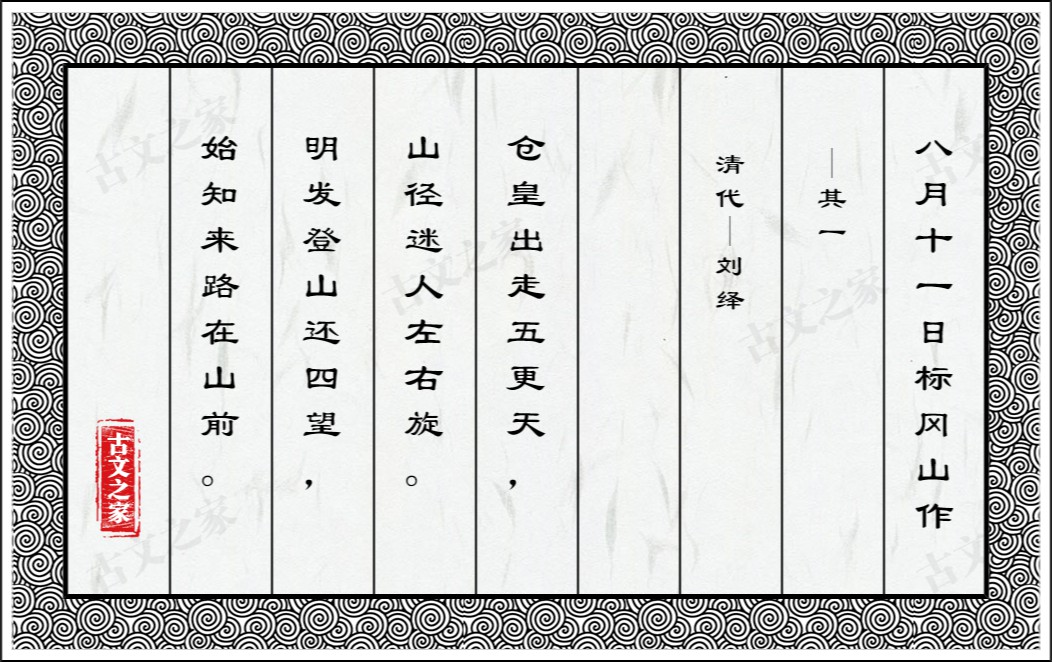 八月十一日标冈山作
—其一
清代—刘绎
仓皇出走五更天，
山径迷人左右旋。
明发登山还四望，
始知来路在山前。
古文之家
古文之家
古文之家
古文之家
古文之家
古文之家